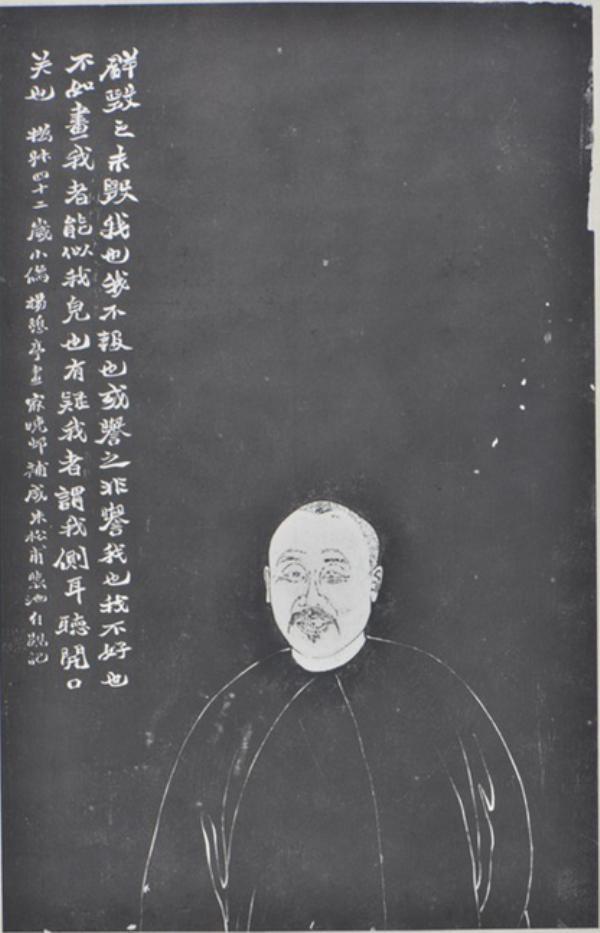 群毀之未毀我也我不報也或譽之非譽我也我不好也
不如畫我者能似我皃也有疑我者謂我側耳聽開口
笑也 松甡四十二歲小像 楊憩亭畫 寂曉邨補成 朱松甫